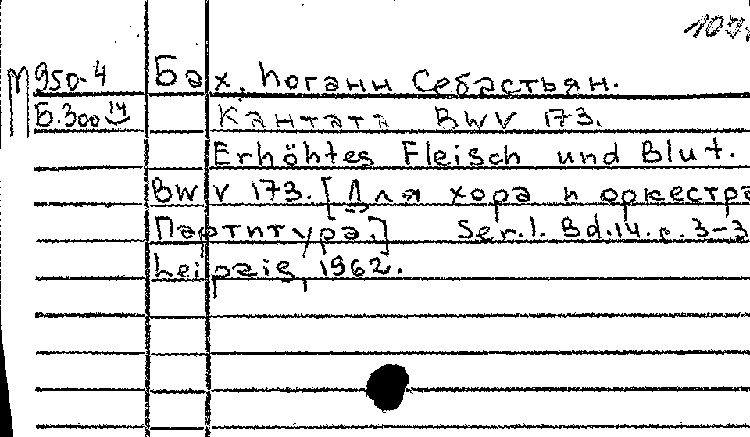 М 950-4 Бах, Иоганн Себастьян.
Б.300 14 Кантата BWV 173.
Erhöhtes Fleisch und Blut.
BWV 173. [Для хора и оркестра
Партитура.] Ser.1. Bd.14. с. 3-3
Leipzig, 1962.